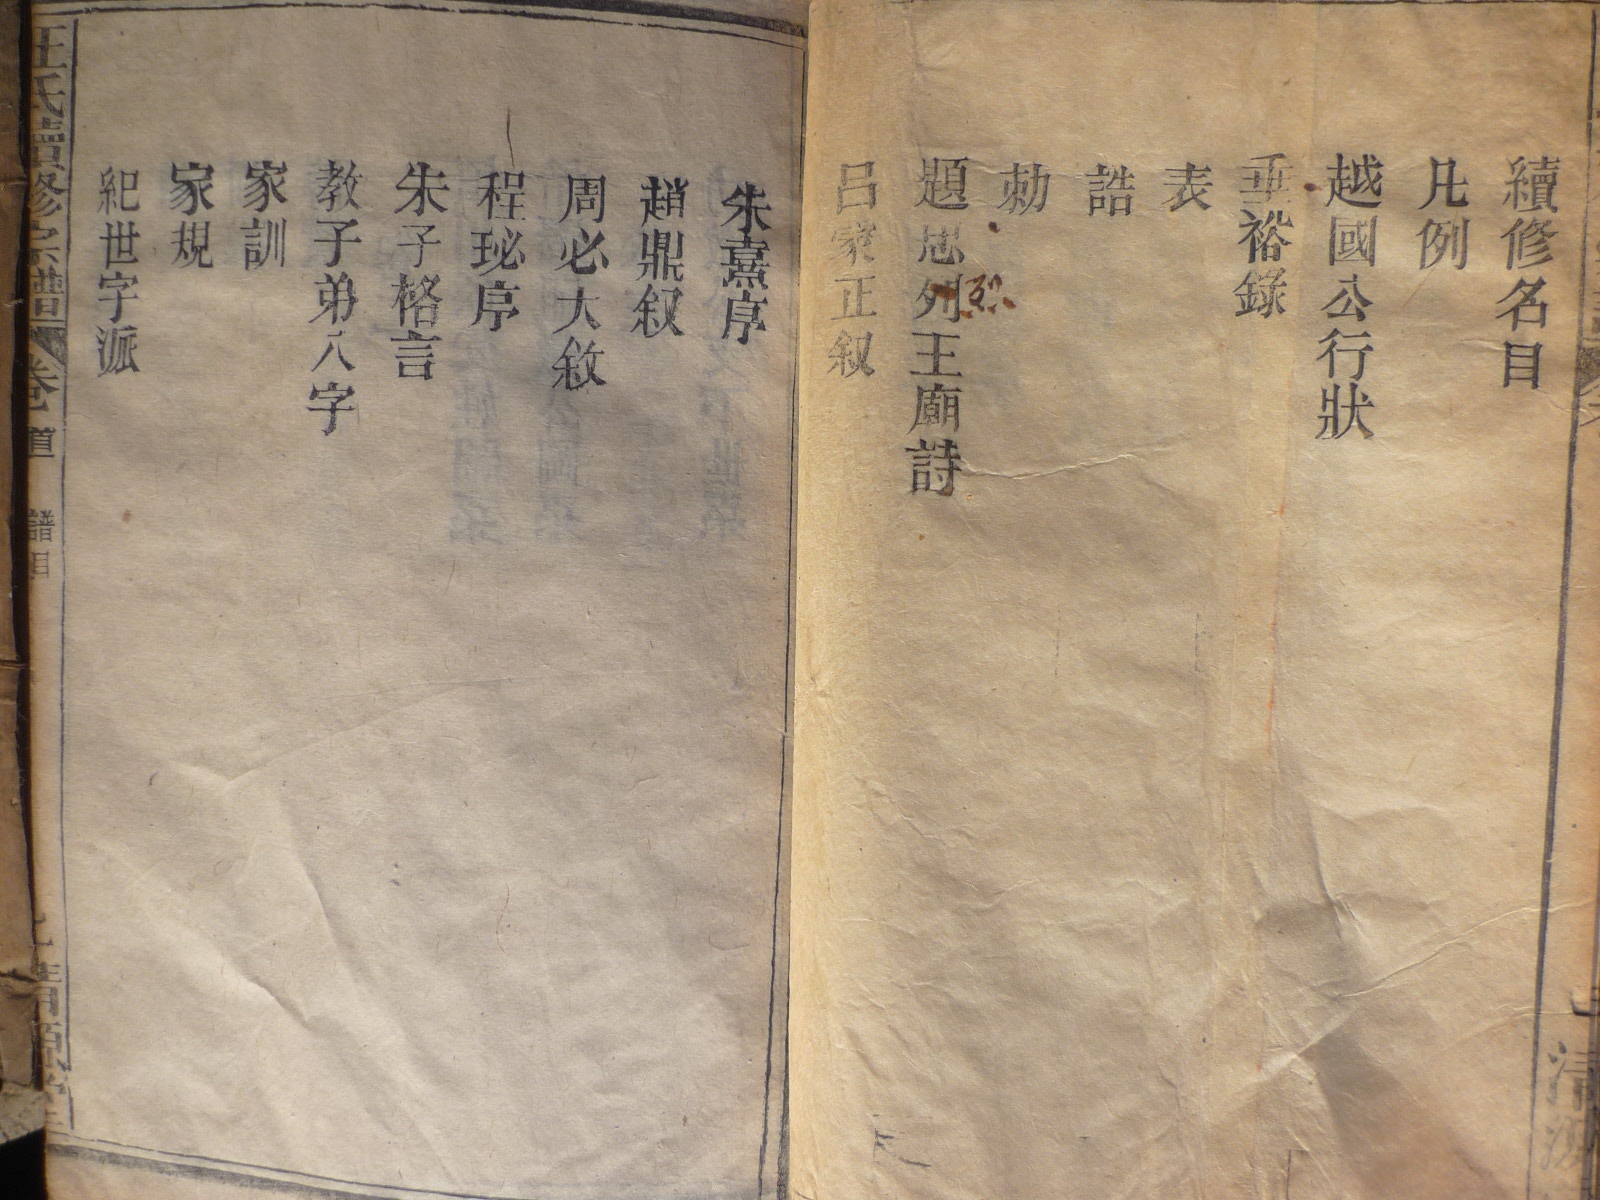 續修名目
凡例
越國公行狀
垂裕錄
表
誥
勅
題忠列王廟詩
烈
呂蒙正叙
朱熹序
趙鼎叙
周必大敘
程珌序
朱子格言
教子弟八字
家訓
家規
紀世字派
汪氏續修宗譜
卷 道
譜目
清源